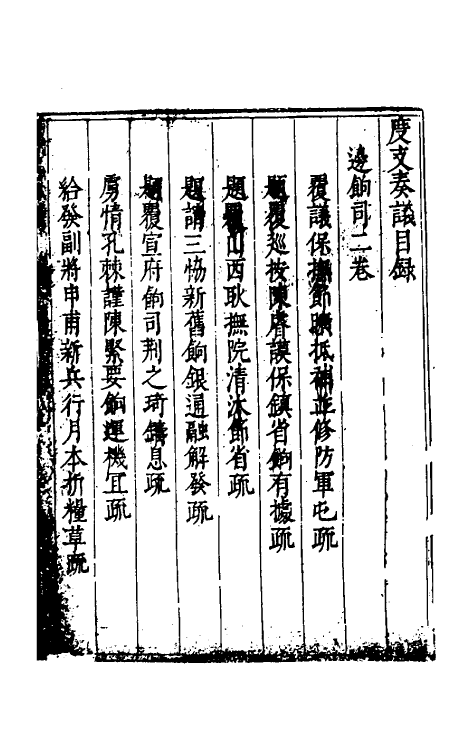 度支奏議目錄
邊餉司二卷
覆議保撫節曠抵補並修防軍屯疏
題覆巡按陳睿謨保鎮省餉有據疏
題覆山西耿撫院清汰節省疏
題請三協新舊餉銀通融解發疏
題覆宣府餉司荆之琦鑄息疏
虜情孔棘謹陳緊要餉運機宜疏
給發副將申甫新兵行月本折糧草疏